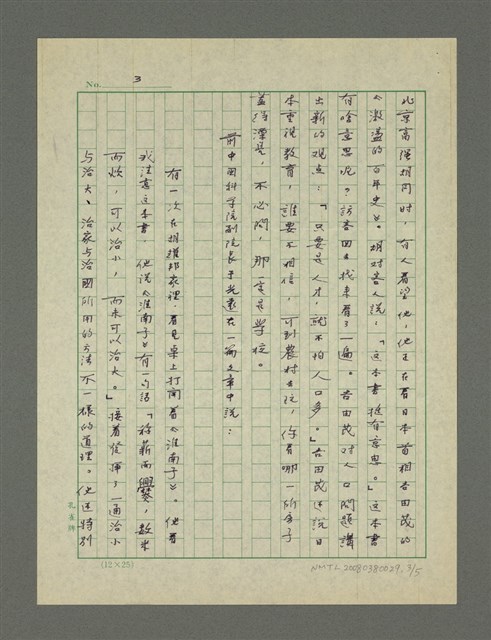 No. 3
北京高幹胡同时，有人看望他，他正在看日本首相吉田茂的
《激盪的百年史》。胡对客人说，「这本书挺有意思。」这本书
有啥意思呢？訪客回去找来看了一遍。吉田茂对人口問題講
出新的观点：「只要是人才，就不怕人口多。」吉田茂还說日
本重視教育，誰要不相信，可到農村去玩，你看哪一所房子
蓋得漂亮，不必問，那一定是学校。
前中国科学院副院長于光遠在一篇文章中説：
有一次在胡耀邦家裡，看見桌上打開着《淮南子》。他看
我注意这本書，他说《淮南子》有一句話「称薪而爨，数米
而炊，可以治小，而未可以治大。」接着發揮了一通治小
与治大、治家与治國所用的方法不一樣的道理。他还特別
孔雀牌
(12×25)
NMTL20080380029. 3/5